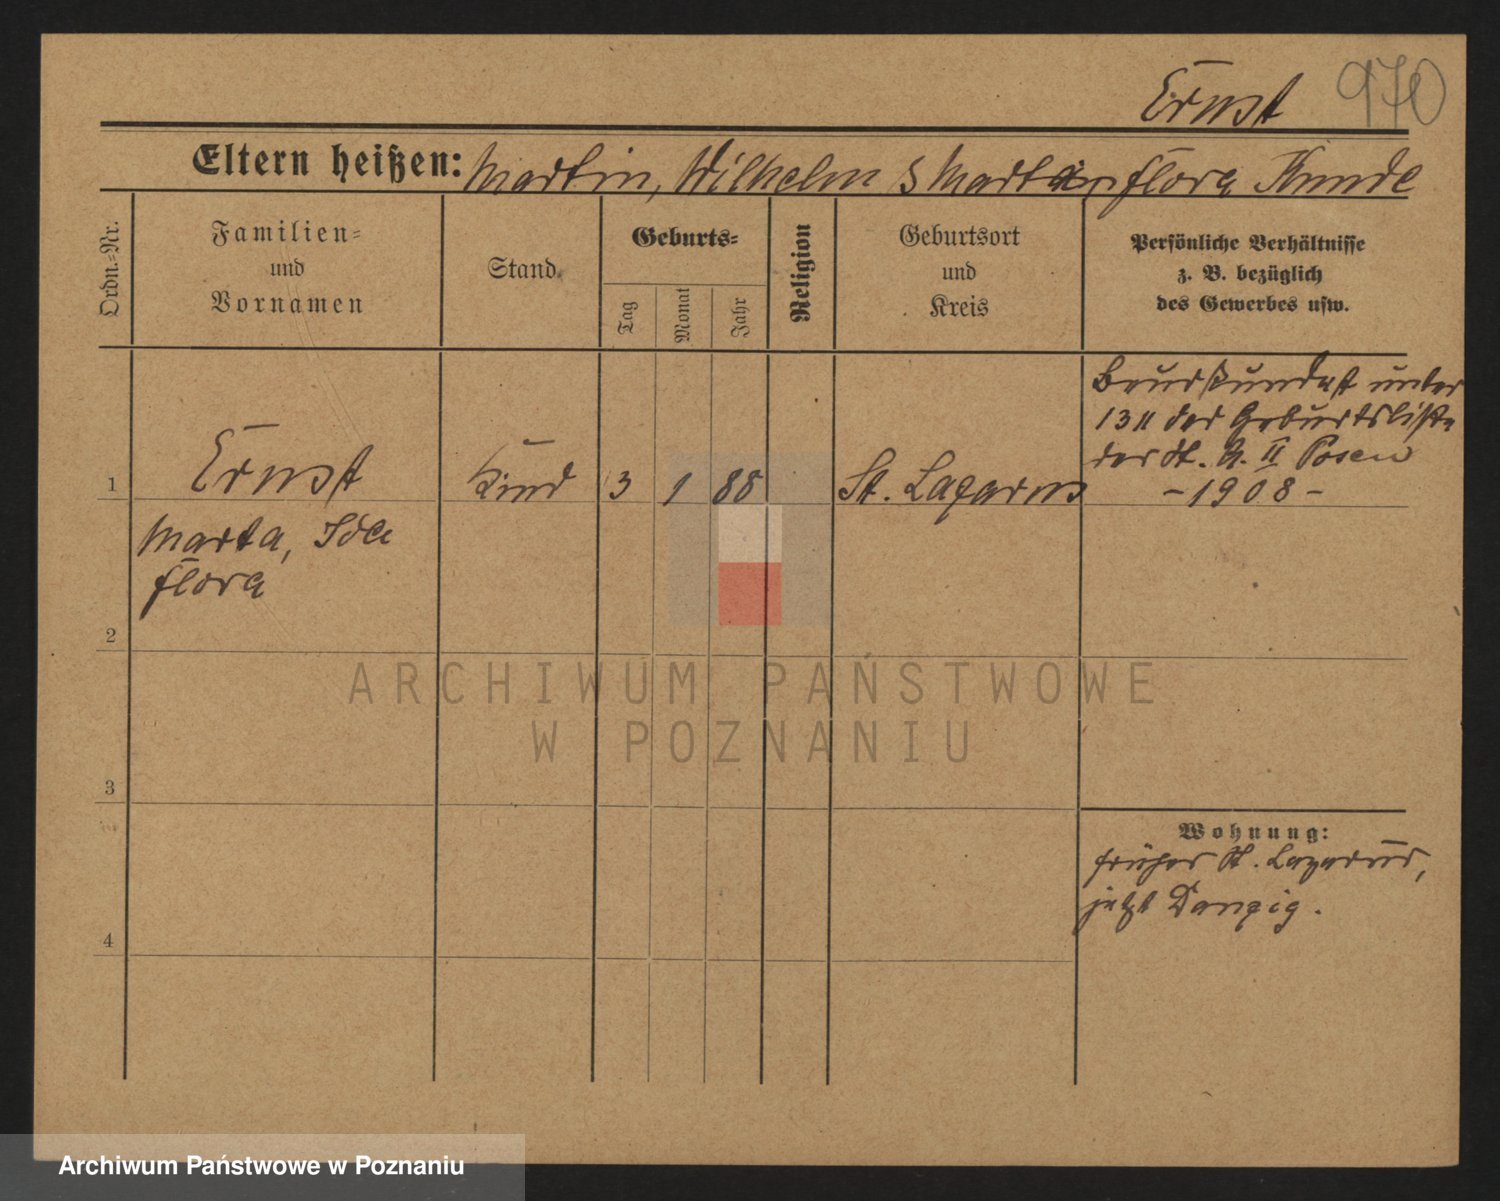 Ernst 970
Eltern heißen: Martin, Wilhelm & Marta Flora Kunde
Ordn.=Nr.
Familien=
und
Vornamen
Stand
Geburts=
Tag
Monat
Jahr
Religion
Geburtsort
und
Kreis
Persönliche Verhältnisse
z. B. bezüglich
des Gewerbes usw.
1 Ernst Kind 3 1 88 St. Lazarus
Marta, Ida
Flora
Beurkundet unter
1311 der Geburtsliste
der St. A. II Posen
- 1908 -
2
3
4
Wohnung:
früher St. Lazarus,
jetzt Danzig.
ARCHIWUM PAŃSTWOWE
W POZNANIU
Archiwum Państwowe w Poznaniu